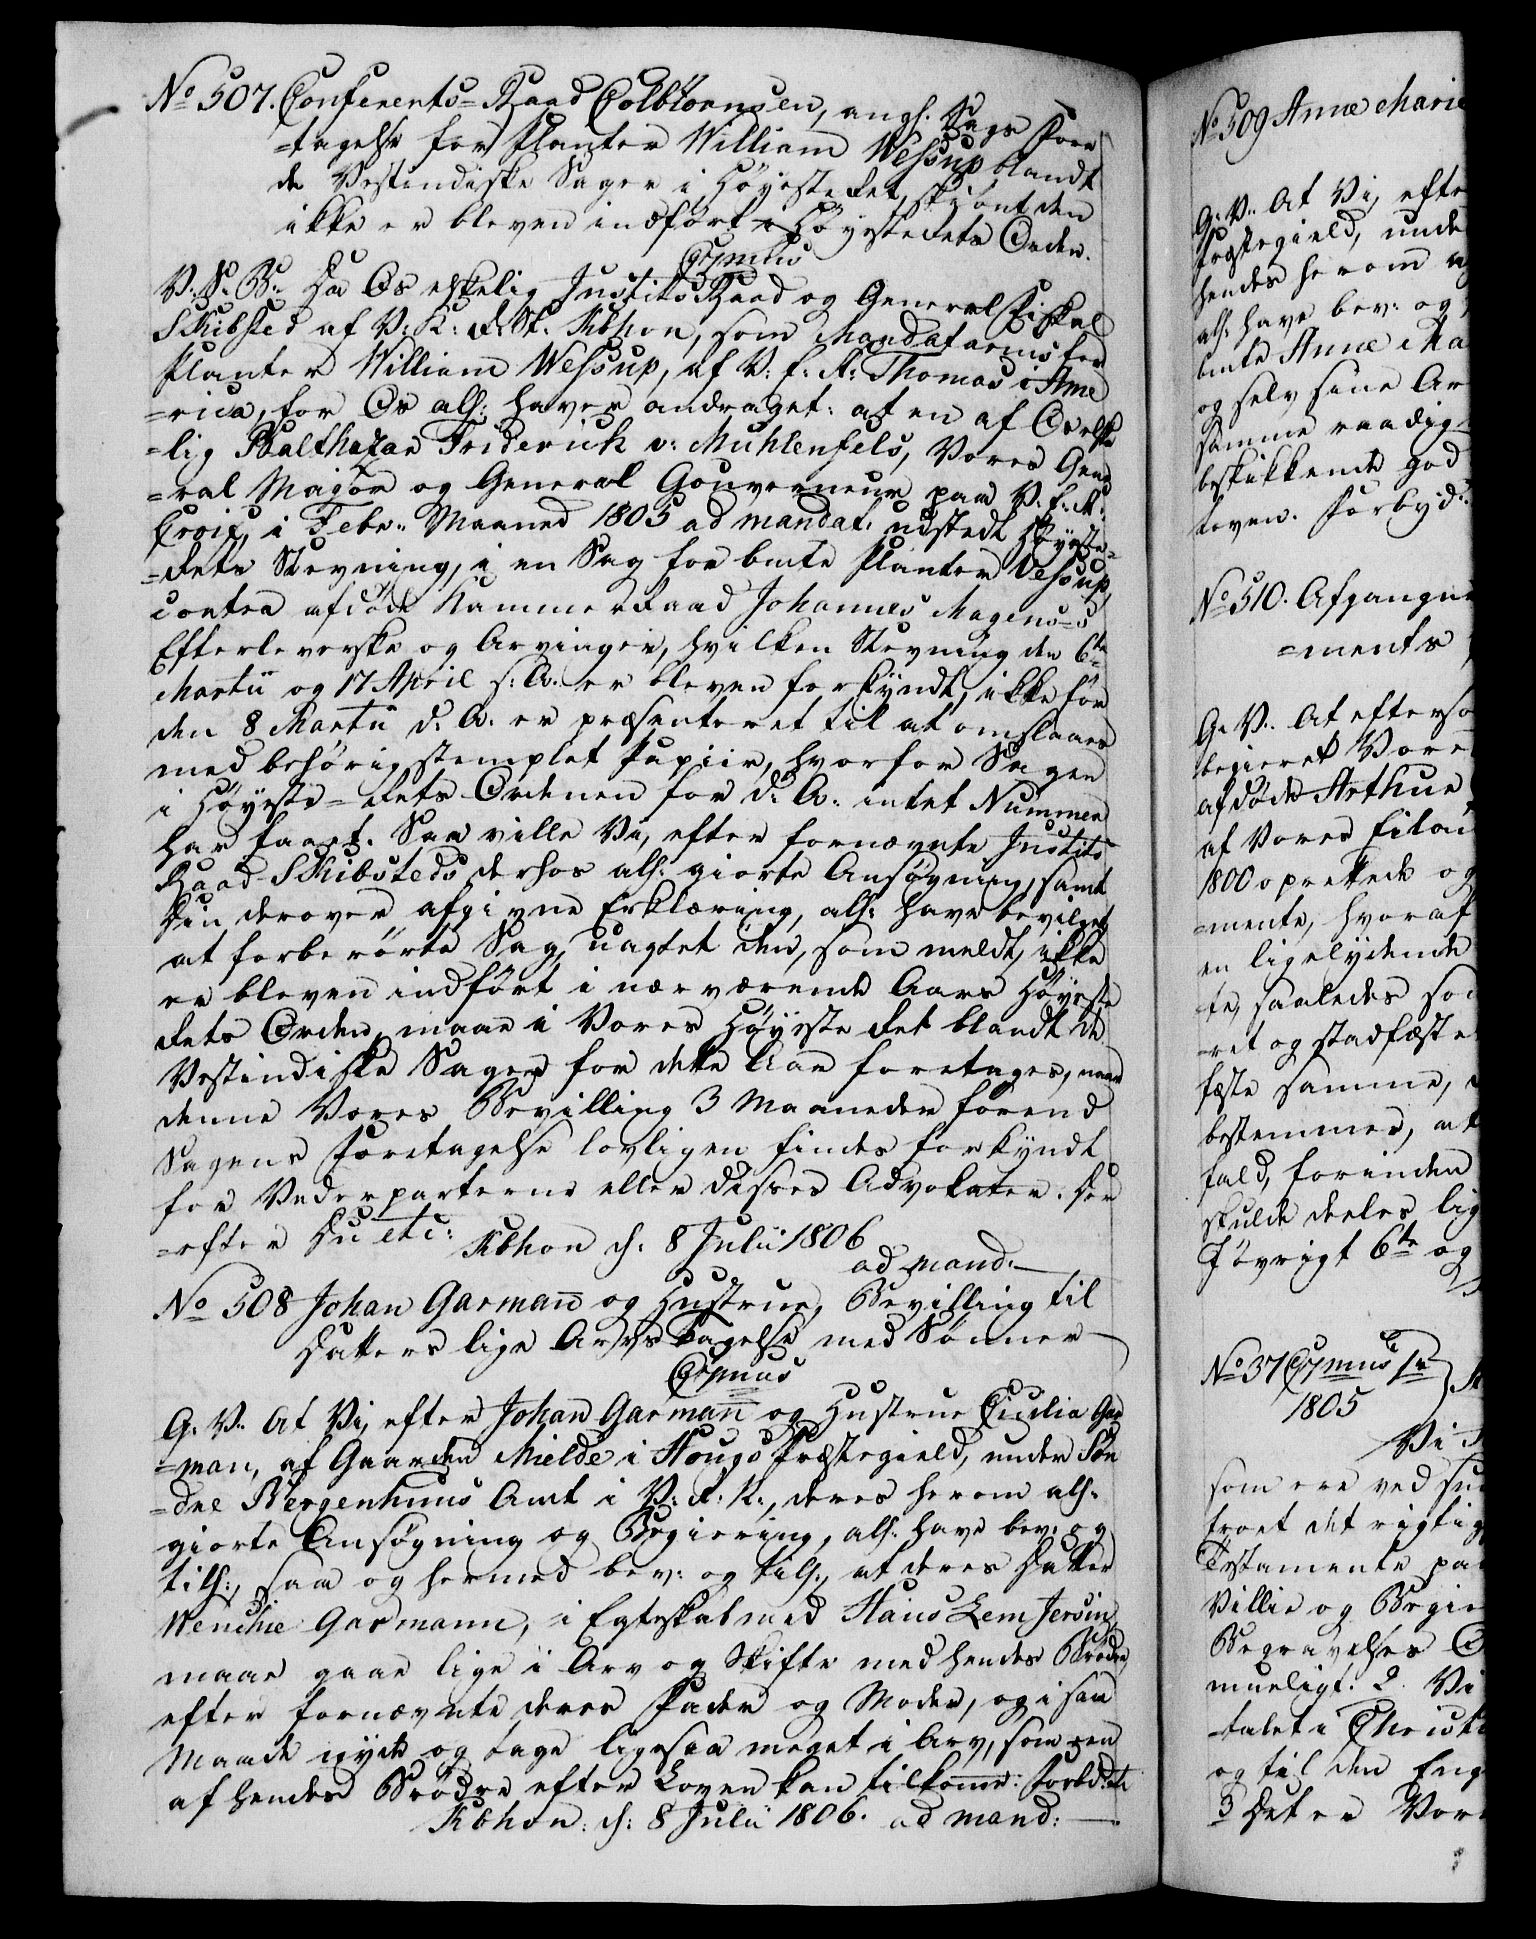 No 507. Conferents-Raad Colbiørnsen, angl. Sags Fore
=tagelse for Planter William Wessup blandt
de Vestindiske Sager i Høyeste Ret, skiønt den
ikke er bleven indført i Høyesterets Orden.
Gr: mus
V. S. B. Da Os elskelig Justits Raad og General Fiskal
Skibsted af V: K: R: St: Kbhvn, som Mandatarius for
Planter William Wessup, af V: E: St: Thomas i Ame
=rica, for Os alh: haver andraget: at en af Os elske
=lig Balthazar Friderich v: Mühlenfels, Vores Gene
=ral Major og General Gouverneur paa V. E. St.
Croix, i Febr. Maaned 1805 ad mandat. udstedt Høyeste-
=Rets Stevning, i en Sag for bmte Planter Wessup,
contra afdøde Kammer Raad Johannes Magens's
Efterleverske og Arvinger, hvilken Stevning den 6te
Martii og 17 April s: A. er bleven forkyndt, ikke før
den 8 Martii d: A. er præsenteret til at omslaaes
med behørig stemplet Papiir, hvorfor Sagen
i Høyeste-Rets Ordenen for d: A: intet Nummer
har faaet. Saa ville Vi, efter fornævnte Justits
Raad Skibsteds derhos alh: giorte Ansøgning, samt
Din derover afgivne Erklæring, alh: have bevilget,
at forberørte Sag, uagtet den, som meldt, ikke
er bleven indført i nærværende Aars Høyeste
Rets Orden, maae i Vores Høyeste Ret blandt de
Vestindiske Sager for dette Aar foretages, naar
denne Vores Bevilling 3 Maaneder forend
Sagens Foretagelse lovligen findes forkyndt
for Vederparterne eller disses Advokater. Der
=efter Du etc: Kbhvn d: 8 Julii 1806
ad mand:
No 508 Johan Garman og Hustrue, Bevilling til
Datters lige Arvs Tagelse med Sønner
Gr: mus
G. V. At Vi, efter Johan Garman og Hustrue Cicilia Gar
=man, af Gaarden Mielde i Hougs Præstegield, under Søn
=dre Bergenhuus Amt i V: R: N:, deres herom alh:
giorte Ansøgning og Begiering, alh: have bev: og
till:, saa og hermed bev: og till:, at deres Datter
Wenchie Garmann, i Egteskab med Hans Lem Jersin,
maae gaae lige i Arv og Skifte med hendes Brødre,
efter fornævnte deres Fader og Moder, og i saa
Maade nyde og tage ligesaa meget i Arv, som een
af hendes Brødre efter Loven kan tilkomme: Forbd: etc
Kbhvn: d: 8 Julii 1806. ad mand:
No 509 Anne Marie
G. V. At Vi, efte
Præstegield, unde
hendes herom
alh: have bev: og
bmte Anne Ma
og selv sine Ar
samme raadig
beskikkende god
Loven. Forbyd:
No 510. Afgangne
=ments
G. V. At eftersom
begieret Vore
afdøde Arthur
af Vores Eiland
1800 oprettede og
=mente, hvoraf
en ligelydende
te, saaledes som
=ret og stadfæste
fæste samme,
bestemmer, at
fald, forinden
skulde deeles lig
Iøvrigt 6te og
No 37 Gr: mus
1805
Vi
som ere ved sun
troet det rigtig
Testamente paa
Villie og Begie
Begravelses
mueligt. 2. Vi
=talet i Christi
og til den Eng
3 Det er Vor